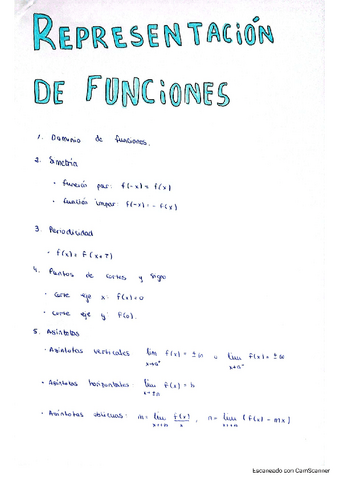 REPRESENTACIÓN
DE FUNCIONES
1. Dominio de funciones.
2. Simetría
• función par: f(-x) = f(x)
• función impar: f(-x) = - f(x)
3. Periodicidad
• f(x) = f(x+T)
4. Puntos de cortes y signo
• corte eje x: f(x)=0
• corte eje y: f(0).
5. Asíntotas
• Asíntotas verticales lim f(x) = ±∞ o lim f(x) = ±∞
• Asíntotas horizontales: lim f(x) = h
x→±∞
• Asíntotas oblicuas: m = lim f(x)/x, n = lim [f(x) - mx]
Escaneado con CamScanner